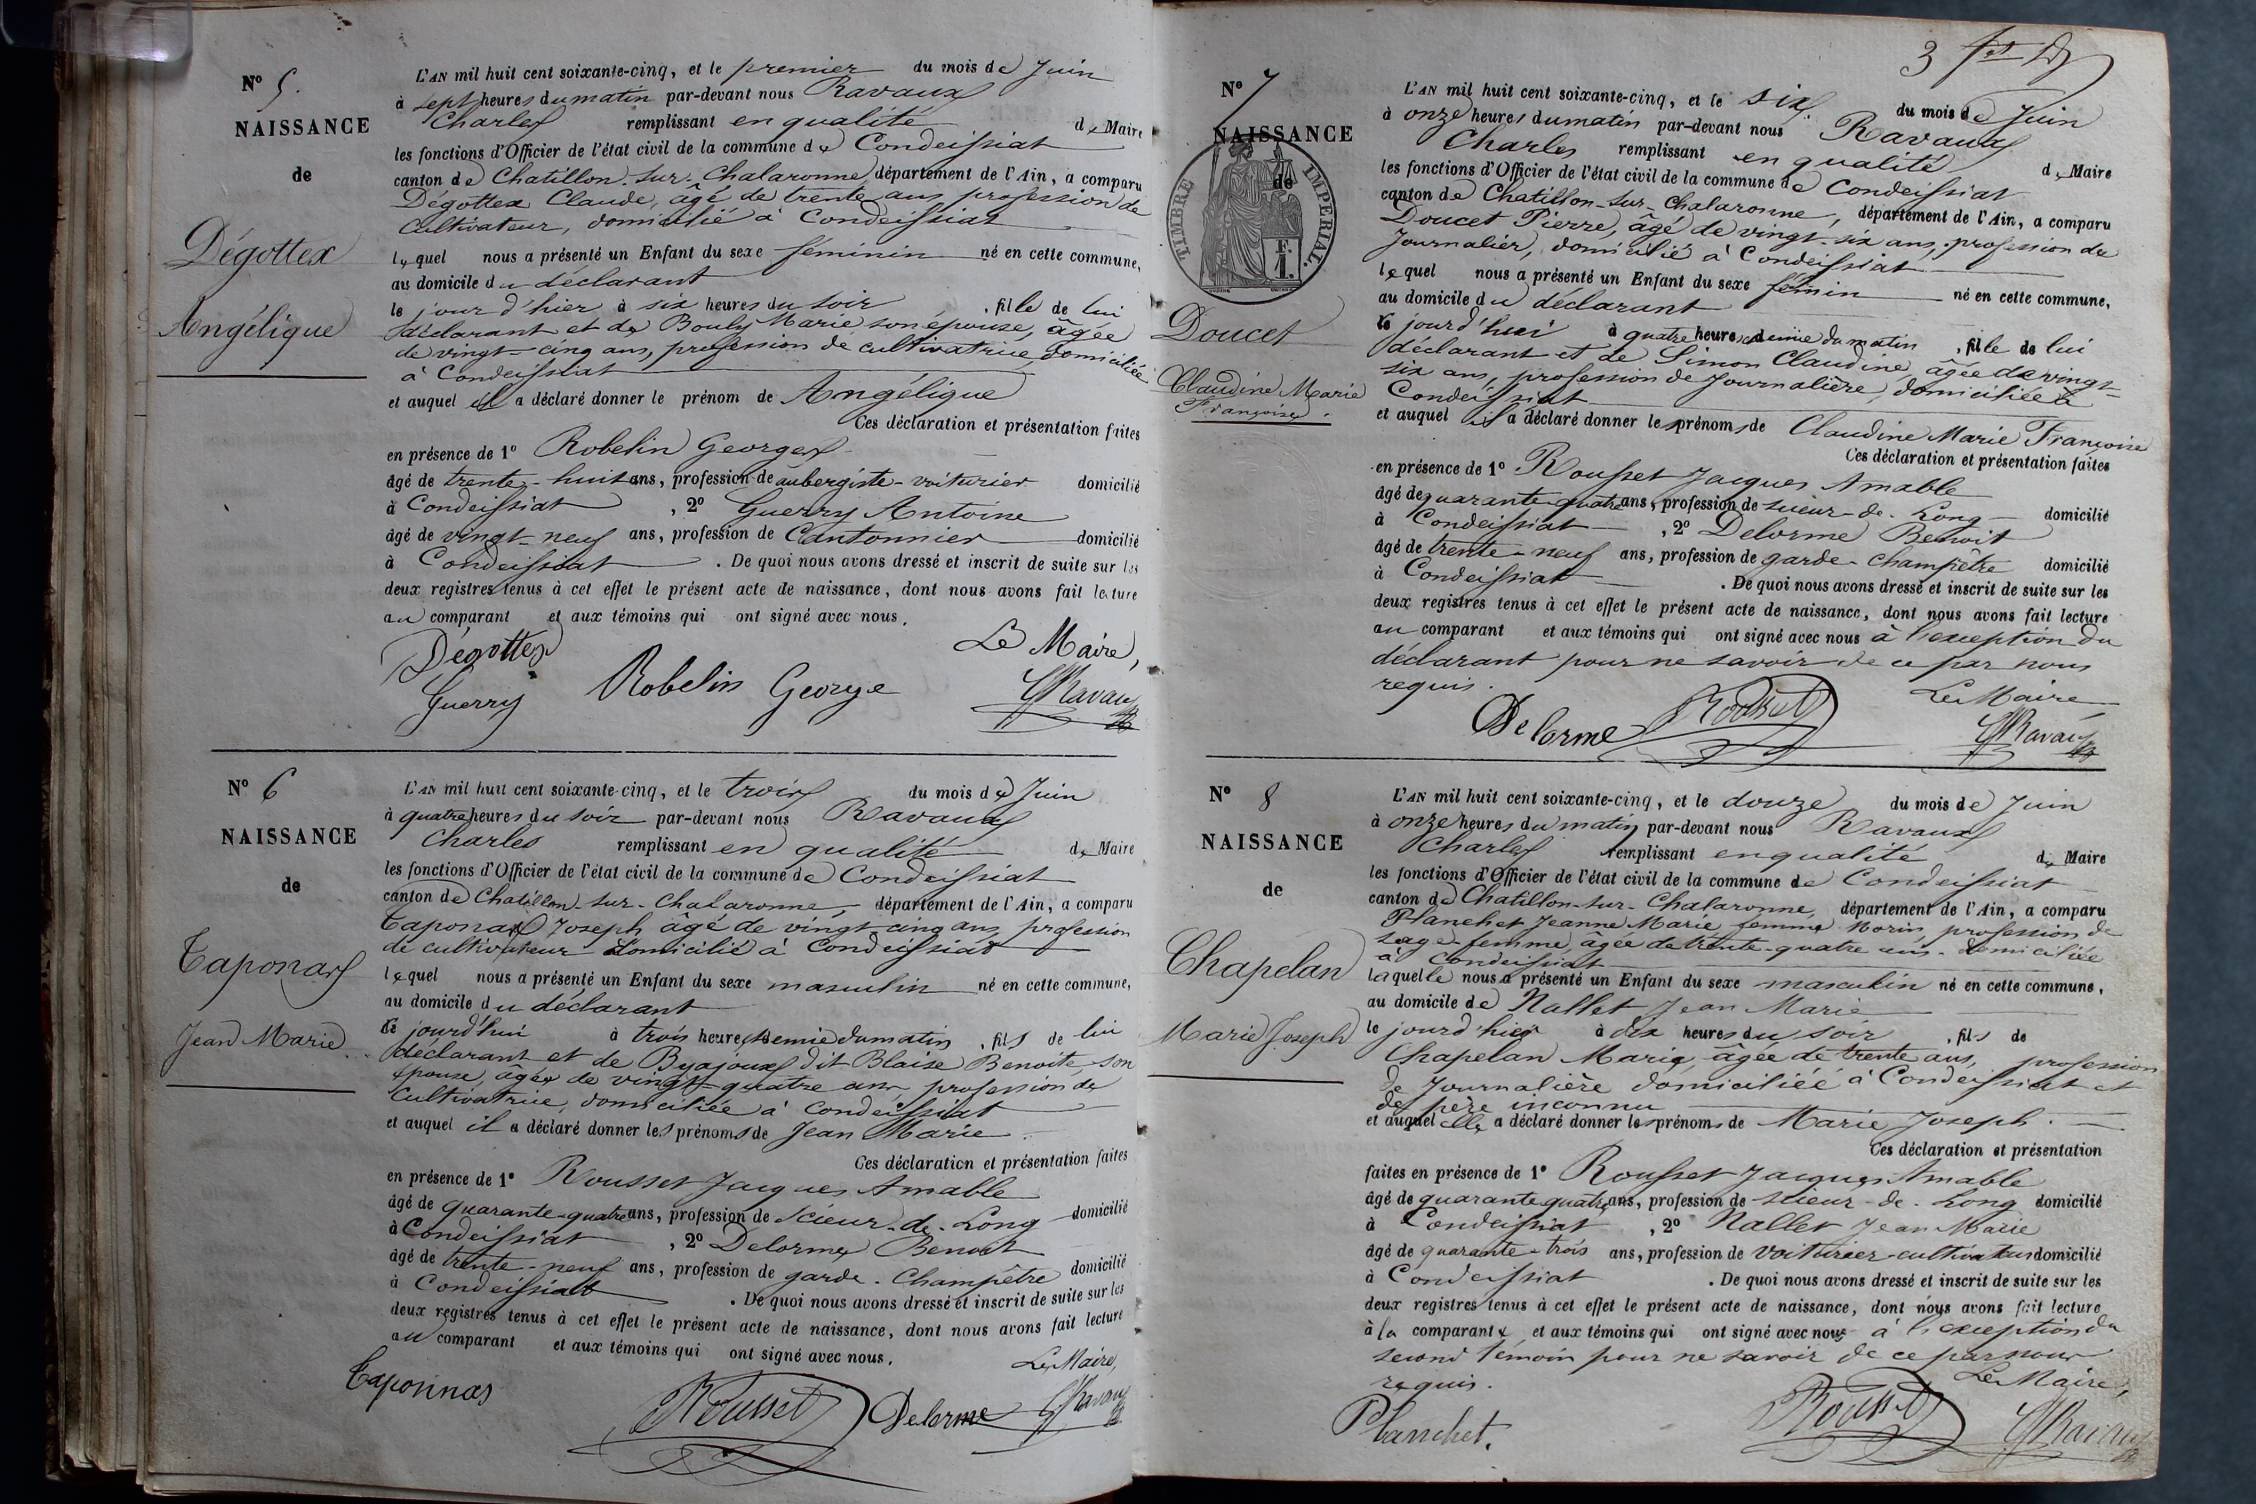 N° 5.
NAISSANCE
de
Dégottex
Angélique
L'AN mil huit cent soixante-cinq, et le premier du mois de Juin
à sept heures du matin par-devant nous Ravaux
Charles remplissant en qualité de Maire
les fonctions d'Officier de l'état civil de la commune de Condeissiat
canton de Chatillon-sur-Chalaronne département de l'Ain, a comparu
Dégottex Claude, âgé de trente ans, profession de
Cultivateur, domicilié à Condeissiat
lequel nous a présenté un Enfant du sexe féminin né en cette commune,
au domicile du déclarant
le jour d'hier à six heures du soir, fille de lui
déclarant et de Bouly Marie son épouse, âgée
de vingt-cinq ans, profession de cultivatrice, domiciliée
à Condeissiat
et auquel il a déclaré donner le prénom de Angélique
Ces déclaration et présentation faites
en présence de 1° Robelin Georges
âgé de trente-huit ans, profession de aubergiste-voiturier domicilié
à Condeissiat, 2° Guerry Antoine
âgé de vingt-neuf ans, profession de Cantonnier domicilié
à Condeissiat. De quoi nous avons dressé et inscrit de suite sur les
deux registres tenus à cet effet le présent acte de naissance, dont nous avons fait lecture
au comparant et aux témoins qui ont signé avec nous.
Dégottex Le Maire,
Guerry Robelin George Ravaux
N° 6
NAISSANCE
de
Taponas
Jean Marie
L'AN mil huit cent soixante-cinq, et le trois du mois de Juin
à quatre heures du soir par-devant nous Ravaux
Charles remplissant en qualité de Maire
les fonctions d'Officier de l'état civil de la commune de Condeissiat
canton de Chatillon-sur-Chalaronne, département de l'Ain, a comparu
Taponas Joseph âgé de vingt-cinq ans, profession
de cultivateur domicilié à Condeissiat
lequel nous a présenté un Enfant du sexe masculin né en cette commune,
au domicile du déclarant
le jourd'hui à trois heures & demie du matin, fils de lui
déclarant et de Byajoux dit Blaise Benoite son
épouse, âgée de vingt-quatre ans, profession de
Cultivatrice, domiciliée à Condeissiat
et auquel il a déclaré donner les prénoms de Jean Marie
Ces déclaration et présentation faites
en présence de 1° Rousset Jacques Amable
âgé de quarante-quatre ans, profession de Scieur-de-Long domicilié
à Condeissiat, 2° Delorme Benoit
âgé de trente-neuf ans, profession de garde-Champêtre domicilié
à Condeissiat. De quoi nous avons dressé et inscrit de suite sur les
deux registres tenus à cet effet le présent acte de naissance, dont nous avons fait lecture
au comparant et aux témoins qui ont signé avec nous.
Le Maire,
Taponnas Rousset Delorme Ravaux
3
N° 7
NAISSANCE
de
TIMBRE IMPERIAL.
1 F.
Doucet
Claudine Marie
Françoise.
L'AN mil huit cent soixante-cinq, et le six du mois de Juin
à onze heures du matin par-devant nous Ravaux
Charles remplissant en qualité de Maire
les fonctions d'Officier de l'état civil de la commune de Condeissiat
canton de Chatillon-sur-Chalaronne, département de l'Ain, a comparu
Doucet Pierre, âgé de vingt-six ans, profession de
Journalier, domicilié à Condeissiat
lequel nous a présenté un Enfant du sexe féminin né en cette commune,
au domicile du déclarant
le jourd'hui à quatre heures & demie du matin, fille de lui
déclarant et de Simon Claudine, âgée de vingt-
six ans, profession de Journalière, domiciliée à
Condeissiat
et auquel il a déclaré donner les prénoms de Claudine Marie Françoise
Ces déclaration et présentation faites
en présence de 1° Rousset Jacques Amable
âgé de quarante-quatre ans, profession de scieur-de-Long domicilié
à Condeissiat, 2° Delorme Benoit
âgé de trente-neuf ans, profession de garde-champêtre domicilié
à Condeissiat. De quoi nous avons dressé et inscrit de suite sur les
deux registres tenus à cet effet le présent acte de naissance, dont nous avons fait lecture
au comparant et aux témoins qui ont signé avec nous à l'exception du
déclarant pour ne savoir de ce par nous
requis. Le Maire
Delorme Rousset Ravaux
N° 8
NAISSANCE
de
Chapelan
Marie Joseph
L'AN mil huit cent soixante-cinq, et le douze du mois de Juin
à onze heures du matin par-devant nous Ravaux
Charles remplissant en qualité de Maire
les fonctions d'Officier de l'état civil de la commune de Condeissiat
canton de Chatillon-sur-Chalaronne, département de l'Ain, a comparu
Planchet Jeanne Marie femme Morin profession de
sage-femme, âgée de trente-quatre ans, domiciliée
à Condeissiat
laquelle nous a présenté un Enfant du sexe masculin né en cette commune,
au domicile de Nallet Jean Marie
le jourd'hier à dix heures du soir, fils de
Chapelan Marie, âgée de trente ans, profession
de Journalière domiciliée à Condeissiat et
de père inconnu
et auquel elle a déclaré donner les prénoms de Marie Joseph.
Ces déclaration et présentation
faites en présence de 1° Rousset Jacques Amable
âgé de quarante-quatre ans, profession de scieur-de-Long domicilié
à Condeissiat, 2° Nallet Jean Marie
âgé de quarante-trois ans, profession de voiturier-cultivateur domicilié
à Condeissiat. De quoi nous avons dressé et inscrit de suite sur les
deux registres tenus à cet effet le présent acte de naissance, dont nous avons fait lecture
à la comparante et aux témoins qui ont signé avec nous à l'exception du
second témoin pour ne savoir de ce par nous
requis. Le Maire,
Planchet. Rousset Ravaux